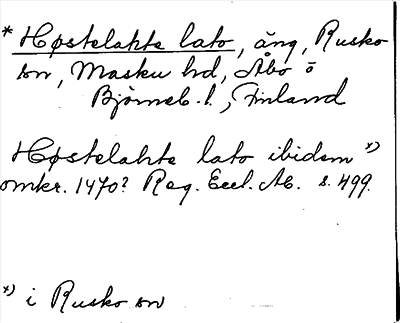 * Høstelahte lato, äng, Rusko
sn, Masku hd, Åbo o
Björneb. l., Finland
Høstelahte lato ibidem x)
omkr. 1470? Reg. Eccl. Ab. s. 499.
x) i Rusko sn